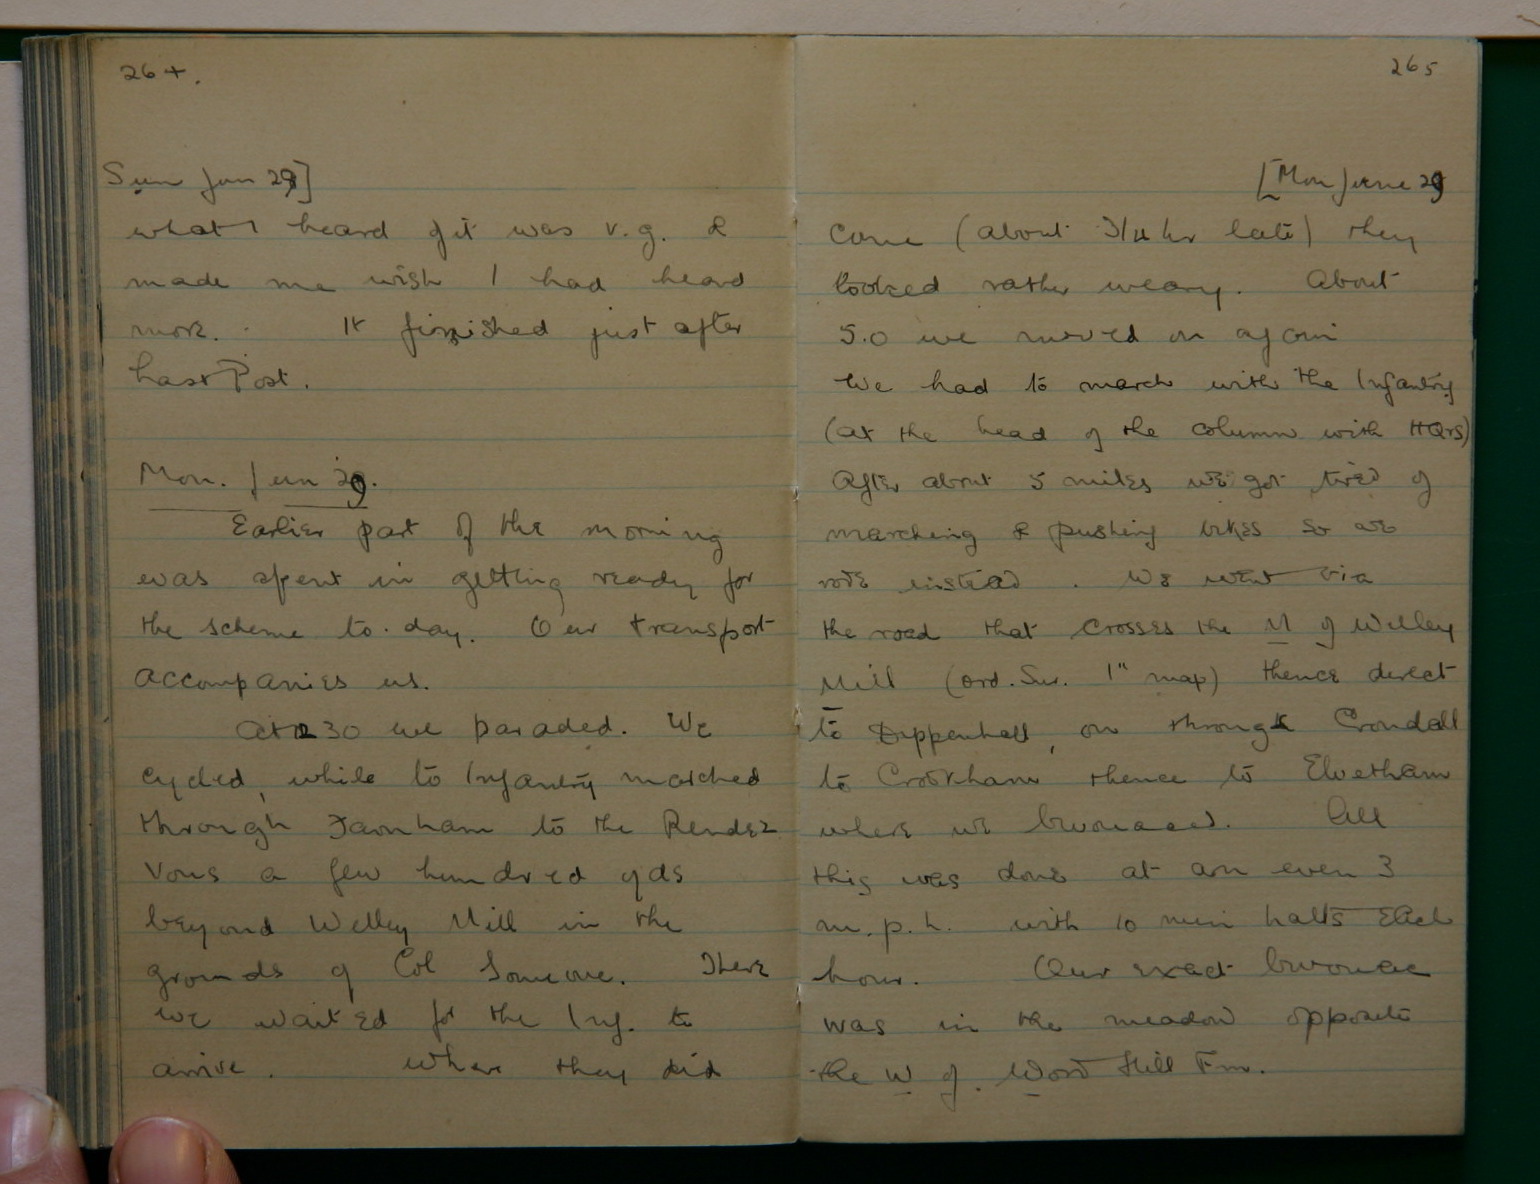 264.
Sun Jun 29]
what I heard of it was v.g. &
made me wish I had heard
more. It finished just after
Last Post.
Mon. Jun 29.
Earlier part of the morning
was spent in getting ready for
the scheme to-day. Our transport
accompanies us.
At 2 30 we paraded. We
cycled, while to Infantry marched
through Farnham to the Rendez
vous a few hundred yds
beyond Willey Mill in the
grounds of Col Someone. There
we waited for the Inf. to
arrive. When they did
265
[Mon June 29
come (about 3/4 hr late) they
looked rather weary. About
5.0 we moved on again
We had to march with the Infantry
(at the head of the column with HQrs)
After about 5 miles we got tired of
marching & pushing bikes so we
rode instead. We went via
the road that crosses the M of Willey
Mill (ord. Sur. 1" map) thence direct
to Dippenhall, on through Crondall
to Crookham thence to Elvetham
where we bivouaced. All
this was done at an even 3
m.p.h. with 10 min halts each
hour. Our exact bivouac
was in the meadow opposite
the W of Word Hill Fm.